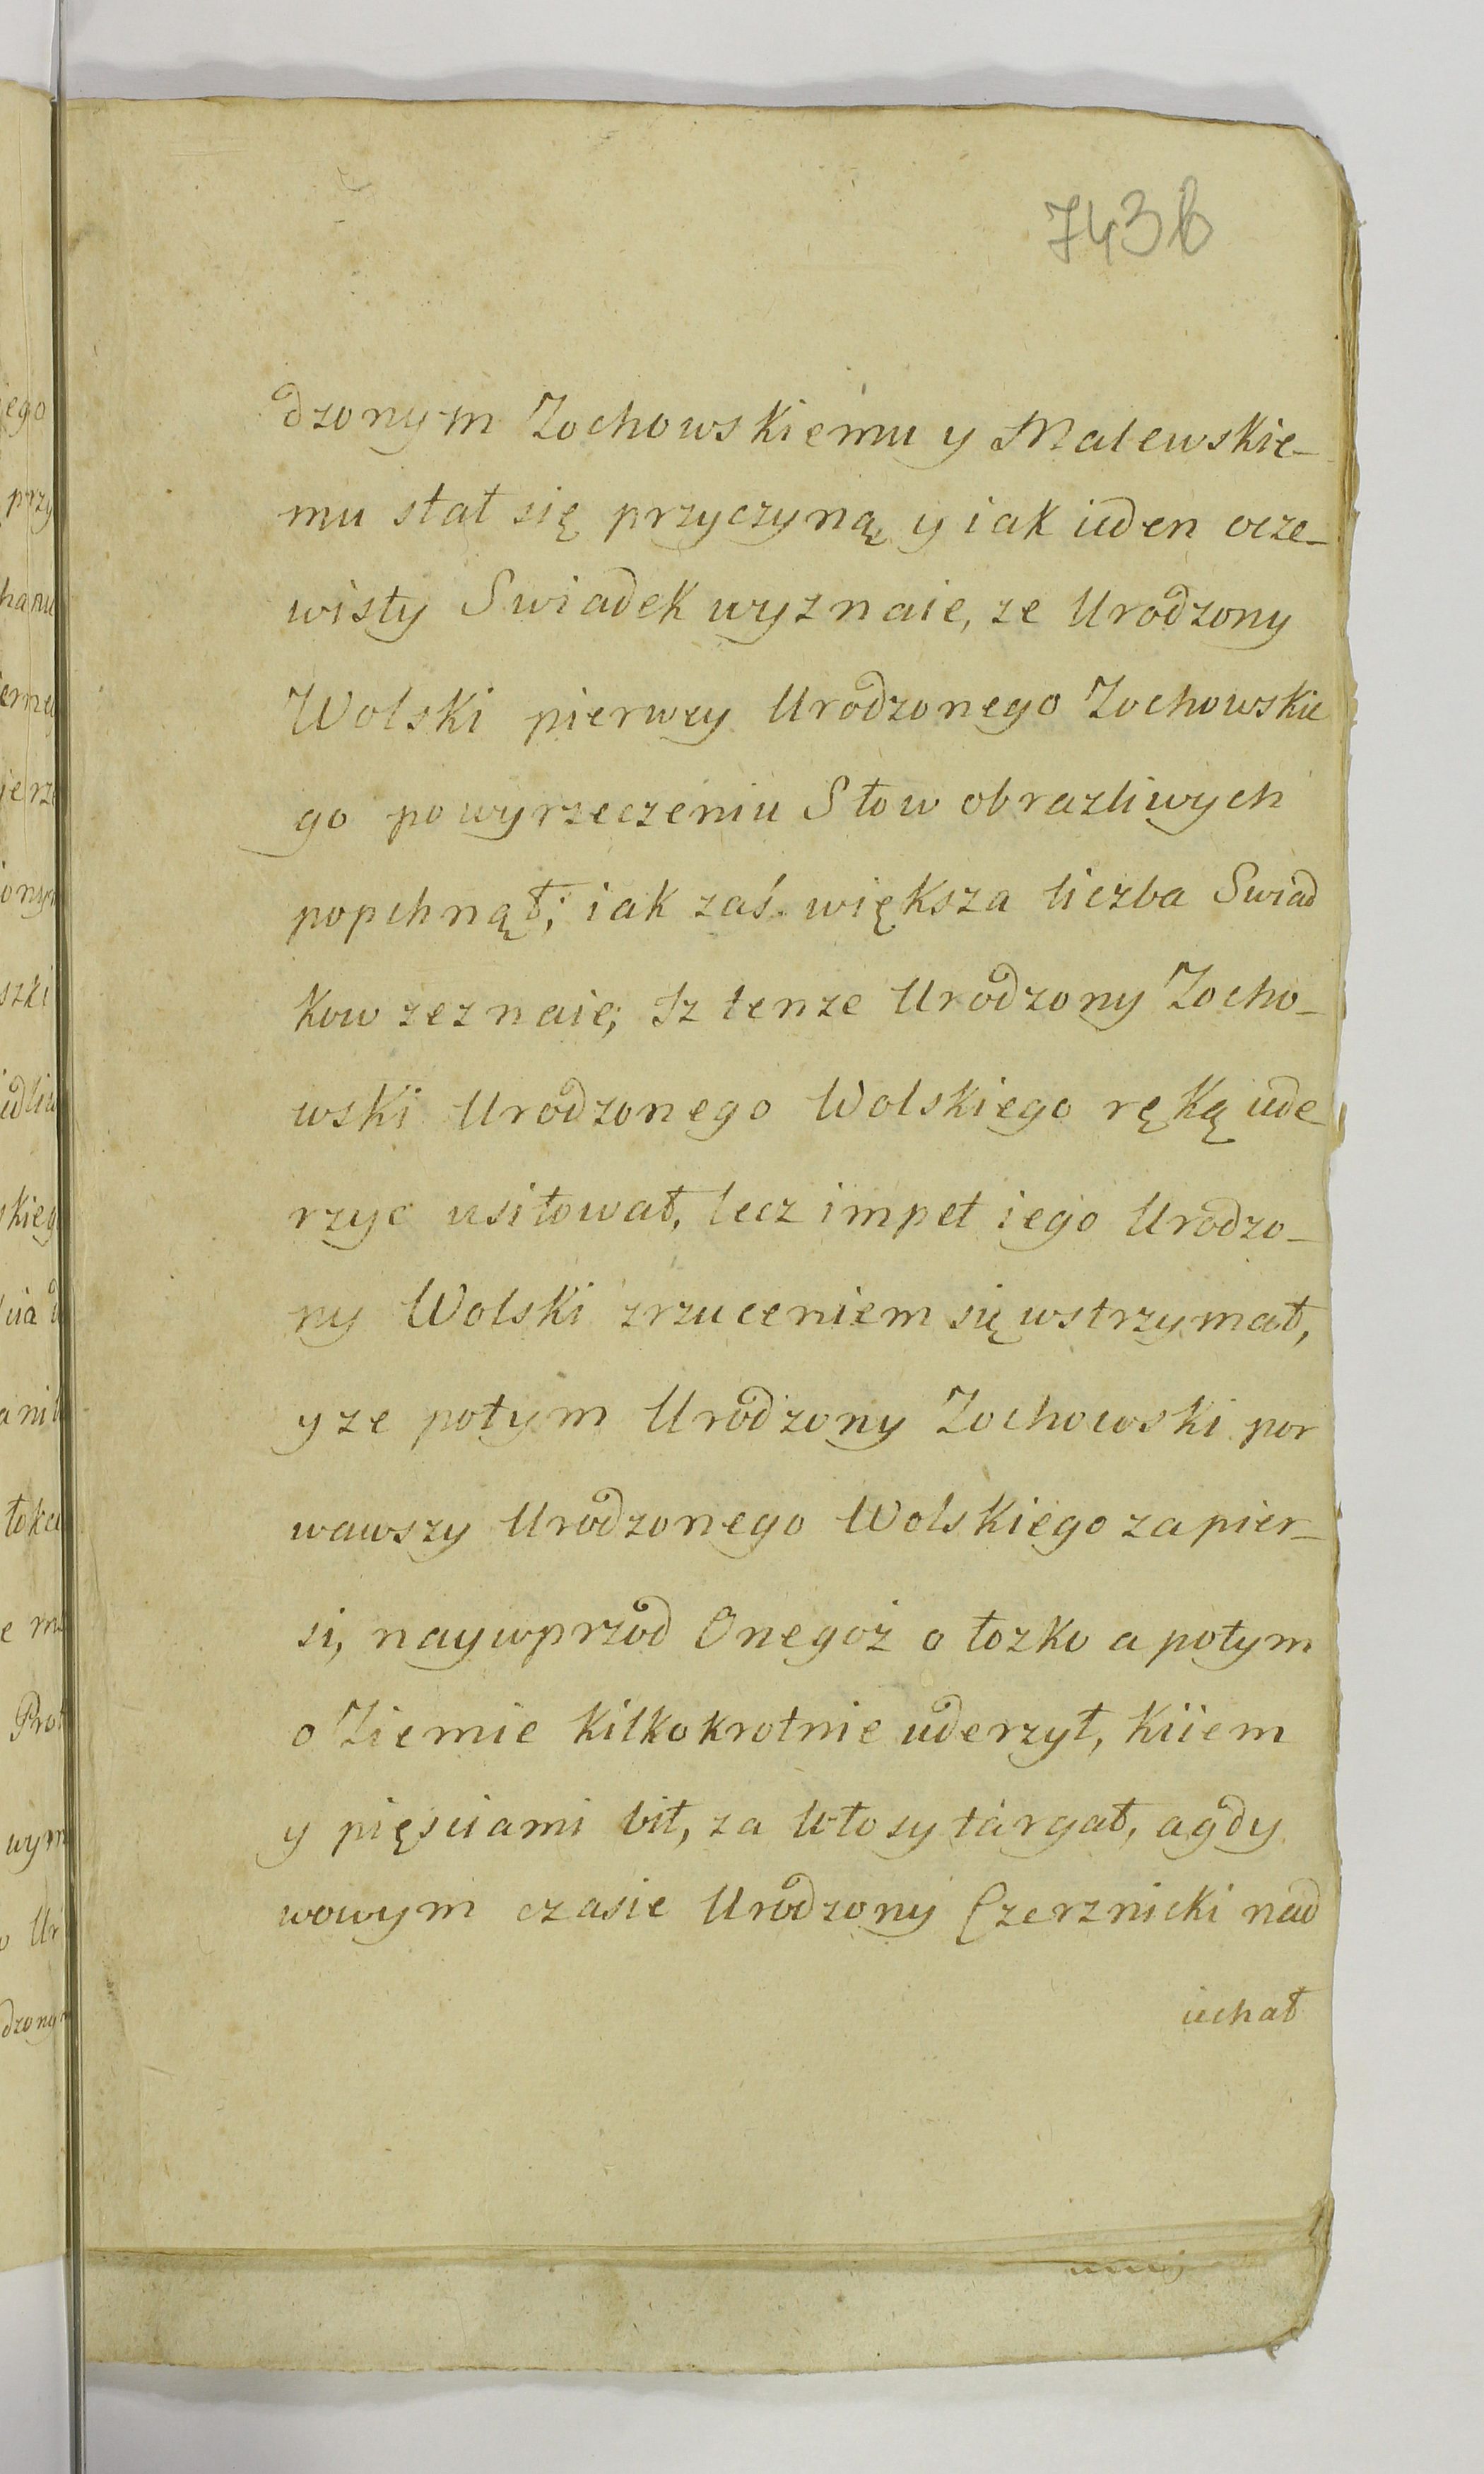 743b
dzonym Zochowskiemu y Malewskie-
mu stał się przyczyną y iak ieden ocze-
wisty Swiadek wyznaie, ze Urodzony
Wolski pierwzy Urodzonego Zochowskie
go po wyrzeczeniu Słow obrazliwych
popchnął, iak zaś większa liczba Swiad
kow zeznaie; Iz tenze Urodzony Zocho-
wski Urodzonego Wolskiego ręką ude-
rzyc usiłował, lecz impet iego Urodzo-
ny Wolski zrzuceniem się wstrzymał,
y ze potym Urodzony Zochowski por
wawszy Urodzonego Wolskiego za pier-
si, naywprzod Onegoż o łozko a potym
o Ziemie kilkokrotnie uderzył, kiiem
y pięsciami bił, za włosy targał, a gdy
wowym czasie Urodzony Czerznicki nad
iechał